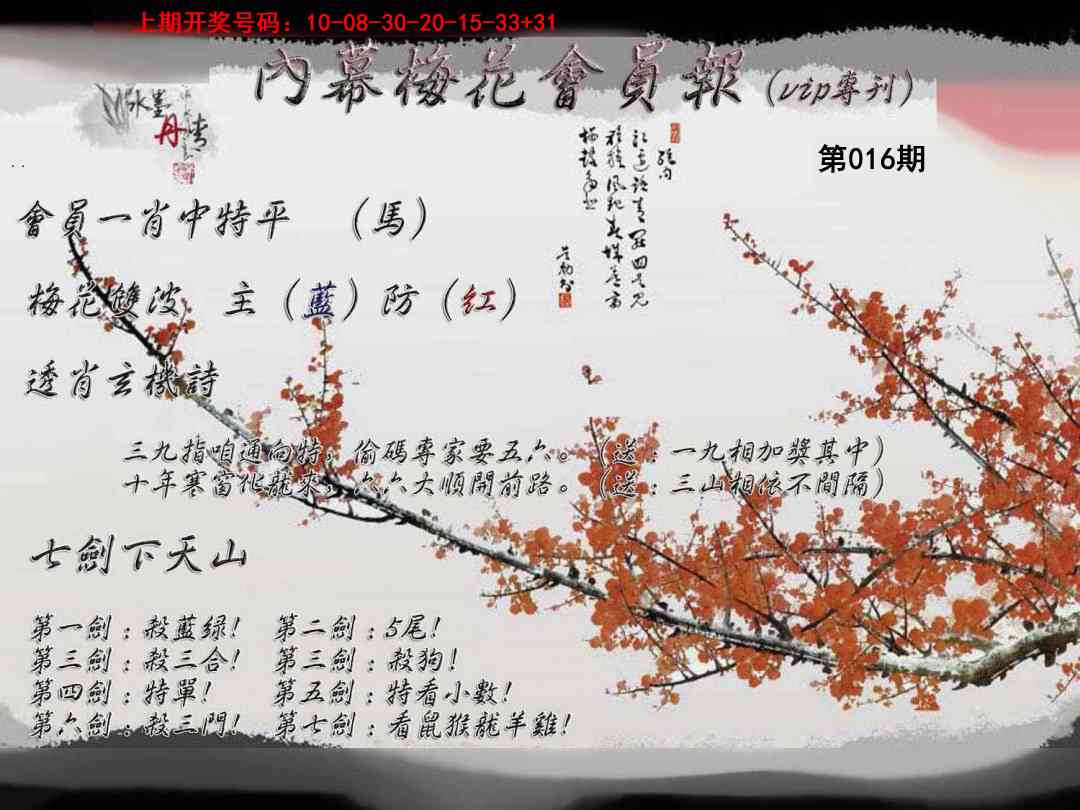 上期开奖号码：10-08-30-20-15-33+31
內幕梅花會員報（vip專刊）
水墨
丹青
第016期
會員一肖中特平 （馬）
梅花雙波 主（藍）防（红）
透肖玄機詩
三九指咱通向特，偷碼專家要五六。（送：一九相加獎其中）
十年寒窗化龍來，六六大順開前路。（送：三山相依不間隔）
七劍下天山
第一劍：殺藍绿！ 第二劍：5尾！
第三劍：殺三合！ 第三劍：殺狗！
第四劍：特單！ 第五劍：特看小數！
第六劍：殺三門！ 第七劍：看鼠猴龍羊雞！